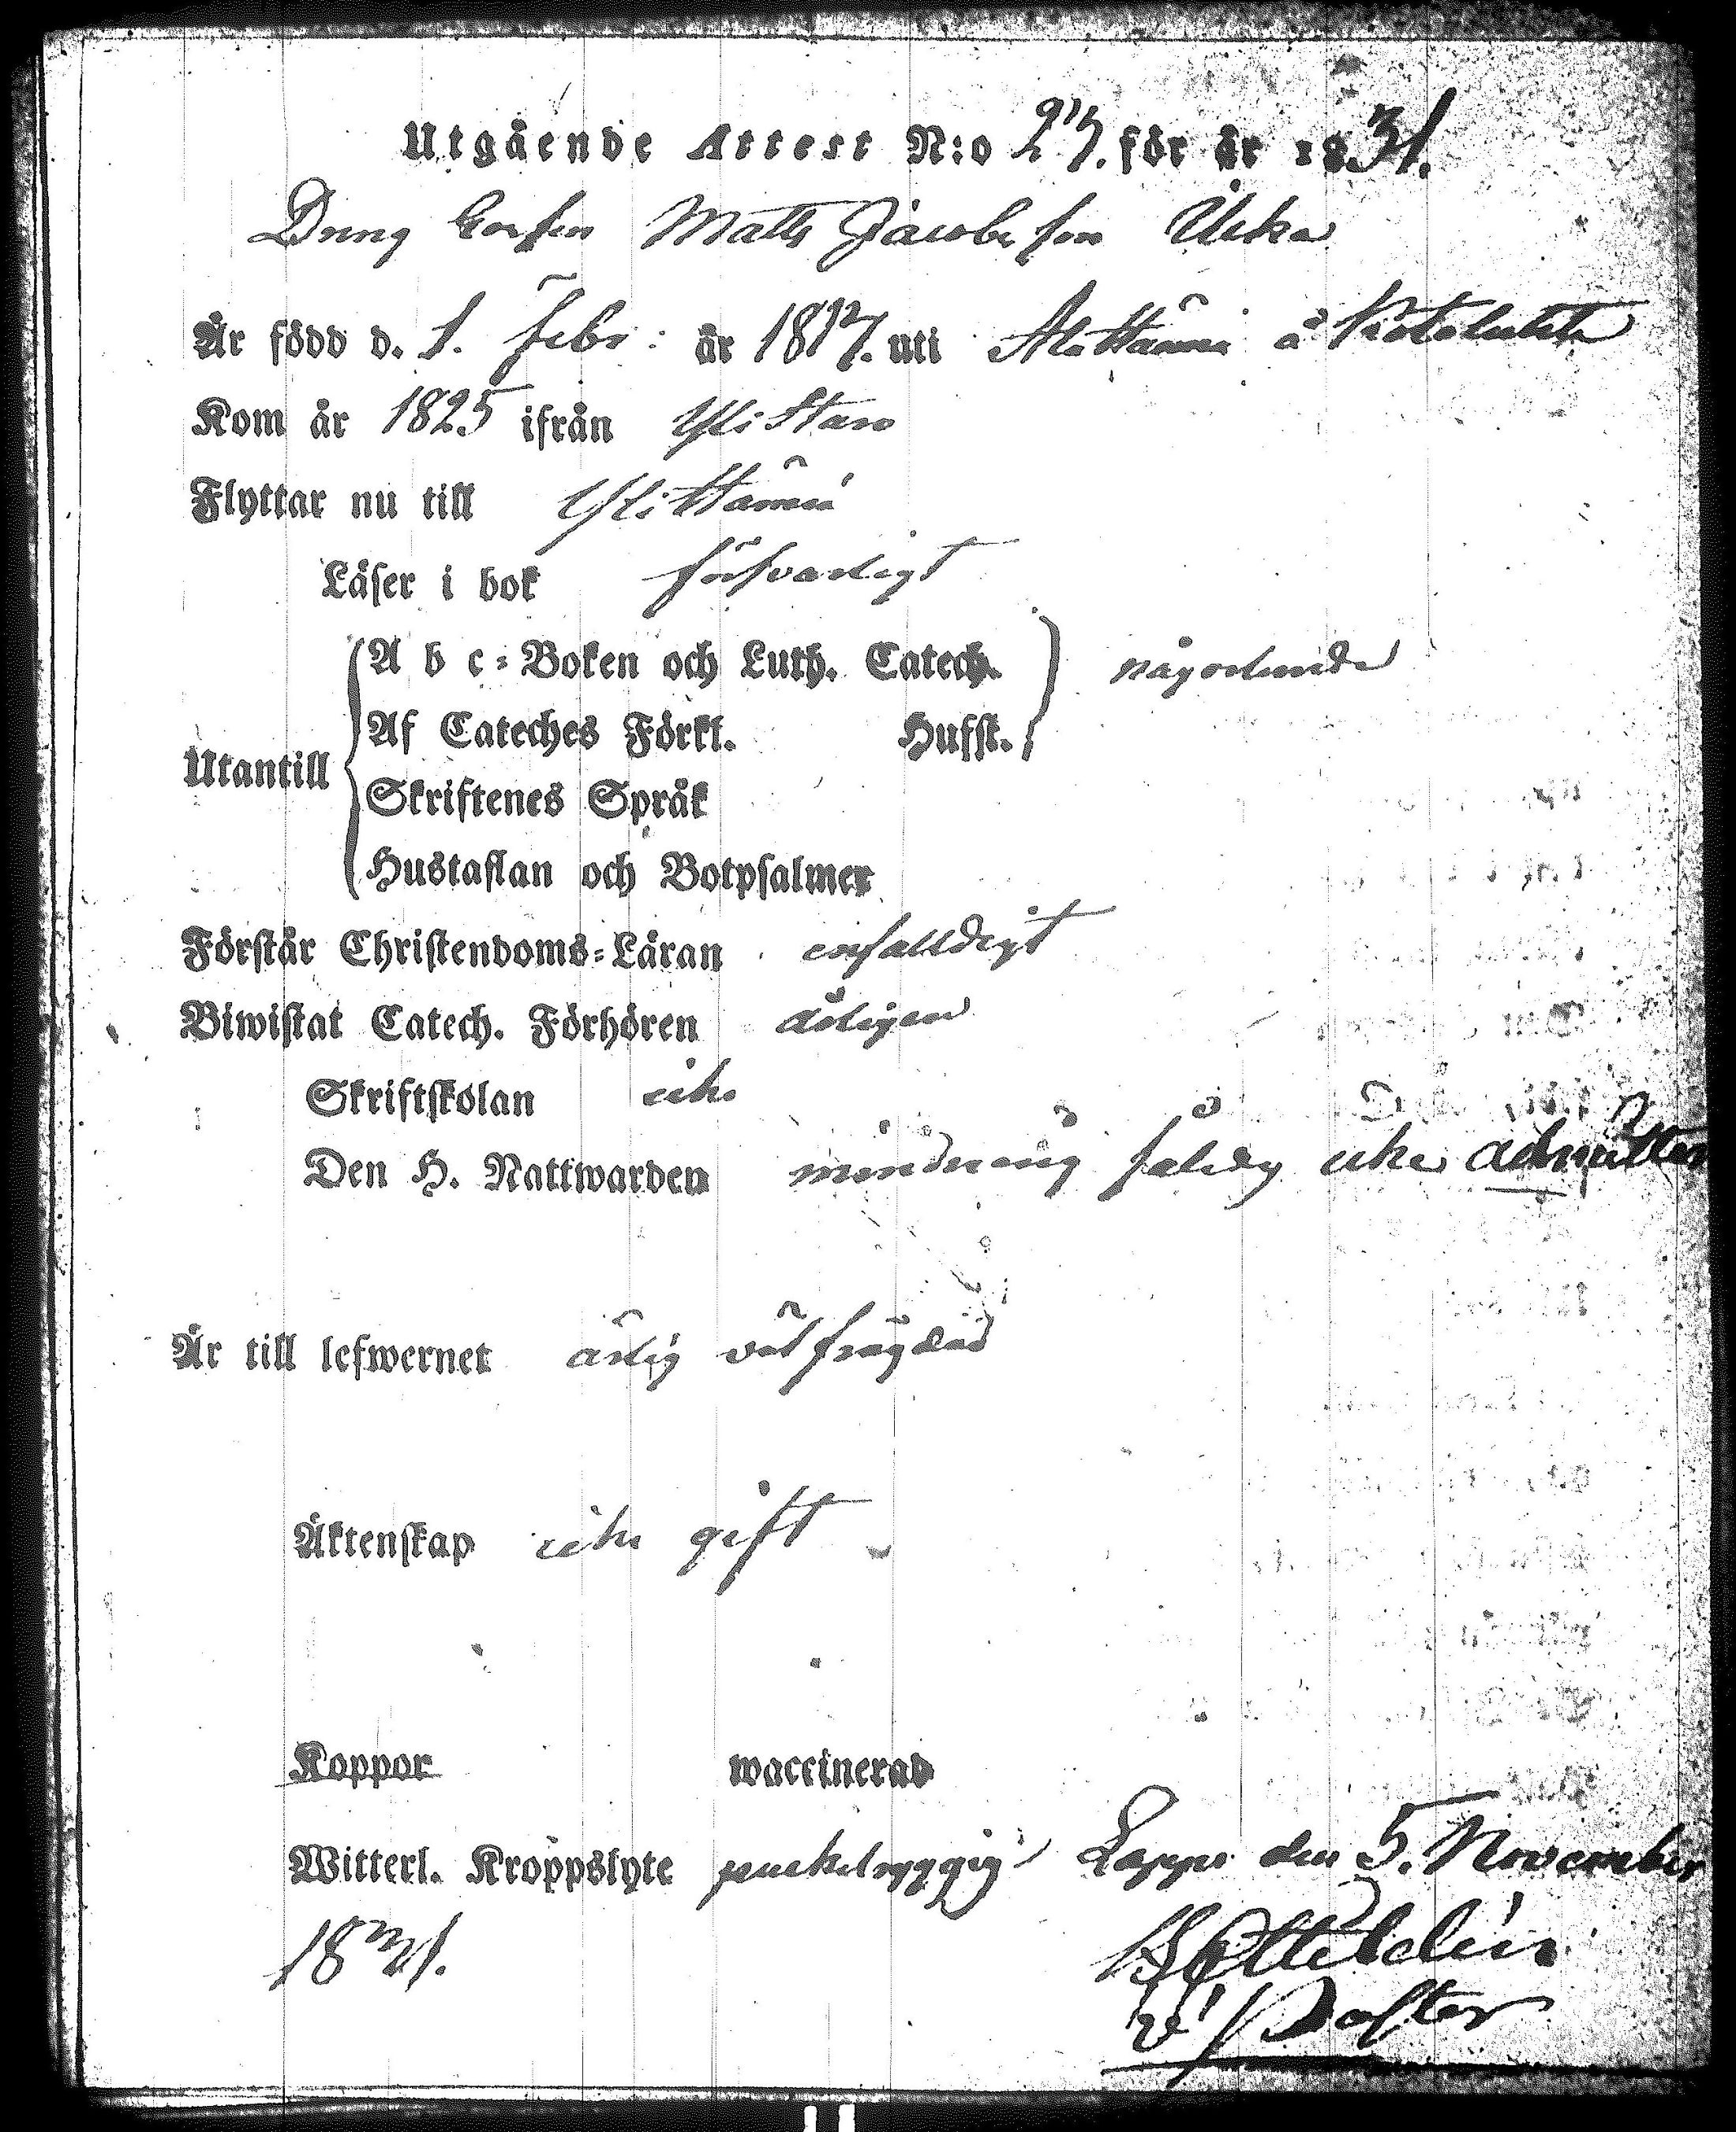 Utgående Attest N:o 27. för år 1831.
Dreng Matts Jacobsson Ücka
Är född d. 1. Febr: år 1817. uti å
Kom år 1825 ifrån Ylistaro
Flyttar nu till
Läser i bok försvarligt
A b c-Boken och Luth. Catech. någorlunda
Af Cateches Förkl. Hufst.
Utantill
Skriftenes Språk
Hustaflan och Botpsalmer
Förstår Christendoms-Läran enfalldigt
Biwistat Catech. Förhören årligen
Skriftskolan icke
Den H. Nattwarden minderårig således icke admitter
Är till lefwernet ärlig välfrägdad
Äktenskap icke gift
Koppor waccinerad
Witterl. Kroppslyte puckelryggig Lappo den 5. November
1831.
v: Pastor